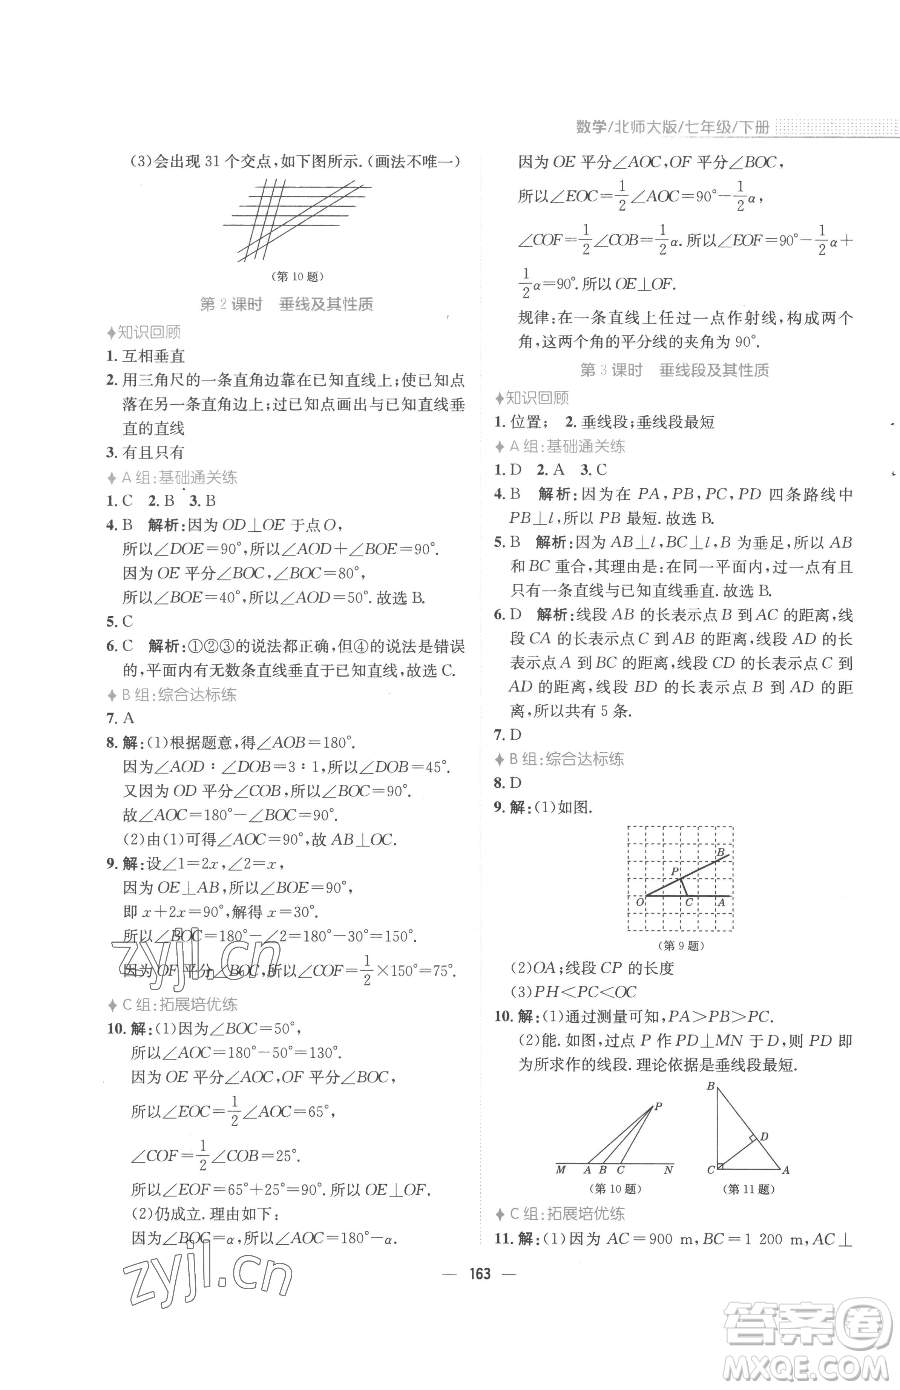 数学/北师大版/七年级/下册
(3)会出现 31 个交点,如下图所示.(画法不唯一)
(第 10 题)
第 2 课时　垂线及其性质
知识回顾
1. 互相垂直
2. 用三角尺的一条直角边靠在已知直线上;使已知点
落在另一条直角边上;过已知点画出与已知直线垂
直的直线
3. 有且只有
A 组:基础通关练
1. C　2. B　3. B
4. B　解析:因为 OD⊥OE 于点 O,
所以∠DOE=90°,所以∠AOD+∠BOE=90°.
因为 OE 平分∠BOC,∠BOC=80°,
所以∠BOE=40°,所以∠AOD=50°.故选 B.
5. C
6. C　解析:①②③的说法都正确,但④的说法是错误
的,平面内有无数条直线垂直于已知直线,故选 C.
B 组:综合达标练
7. A
8. 解:(1)根据题意,得∠AOB=180°.
因为∠AOD∶∠DOB=3∶1,所以∠DOB=45°.
又因为 OD 平分∠COB,所以∠BOC=90°.
故∠AOC=180°-∠BOC=90°.
(2)由(1)可得∠AOC=90°,故 AB⊥OC.
9. 解:设∠1=2x,则∠2=x,
因为 OE⊥AB,所以∠BOE=90°,
即 x+2x=90°,解得 x=30°.
所以∠BOC=180°-∠2=180°-30°=150°.
因为 OF 平分∠BOC,所以∠COF=1/2×150°=75°.
C 组:拓展培优练
10. 解:(1)因为∠BOC=50°,
所以∠AOC=180°-50°=130°.
因为 OE 平分∠AOC,OF 平分∠BOC,
所以∠EOC=1/2∠AOC=65°,
∠COF=1/2∠COB=25°.
所以∠EOF=65°+25°=90°.所以 OE⊥OF.
(2)仍成立.理由如下:
因为∠BOC=α,所以∠AOC=180°-α.
因为 OE 平分∠AOC,OF 平分∠BOC,
所以∠EOC=1/2∠AOC=90°-1/2α,
∠COF=1/2∠COB=1/2α.所以∠EOF=90°-1/2α+
1/2α=90°.所以 OE⊥OF.
规律:在一条直线上任过一点作射线,构成两个
角,这两个角的平分线的夹角为 90°.
第 3 课时　垂线段及其性质
知识回顾
1. 位置;　2. 垂线段;垂线段最短
A 组:基础通关练
1. D　2. A　3. C
4. B　解析:因为在 PA,PB,PC,PD 四条路线中
PB⊥l,所以 PB 最短.故选 B.
5. B　解析:因为 AB⊥l,BC⊥l,B 为垂足,所以 AB
和 BC 重合,其理由是:在同一平面内,过一点有且
只有一条直线与已知直线垂直.故选 B.
6. D　解析:线段 AB 的长表示点 B 到 AC 的距离,线
段 CA 的长表示点 C 到 AB 的距离,线段 AD 的长
表示点 A 到 BC 的距离,线段 CD 的长表示点 C 到
AD 的距离,线段 BD 的长表示点 B 到 AD 的距
离,所以共有 5 条.
7. D
B 组:综合达标练
8. D
9. 解:(1)如图.
B
P
O C A
(第 9 题)
(2)OA;线段 CP 的长度
(3)PH<PC<OC
10. 解:(1)通过测量可知,PA>PB>PC.
(2)能.如图,过点 P 作 PD⊥MN 于 D,则 PD 即
为所求作的线段.理论依据是垂线段最短.
P
M A B C N
(第 10 题)
B
D
C A
(第 11 题)
C 组:拓展培优练
11. 解:(1)因为 AC=900 m,BC=1 200 m,AC⊥
163
zyjl.cn
zyjl.cn
答案圈
MXQE.COM